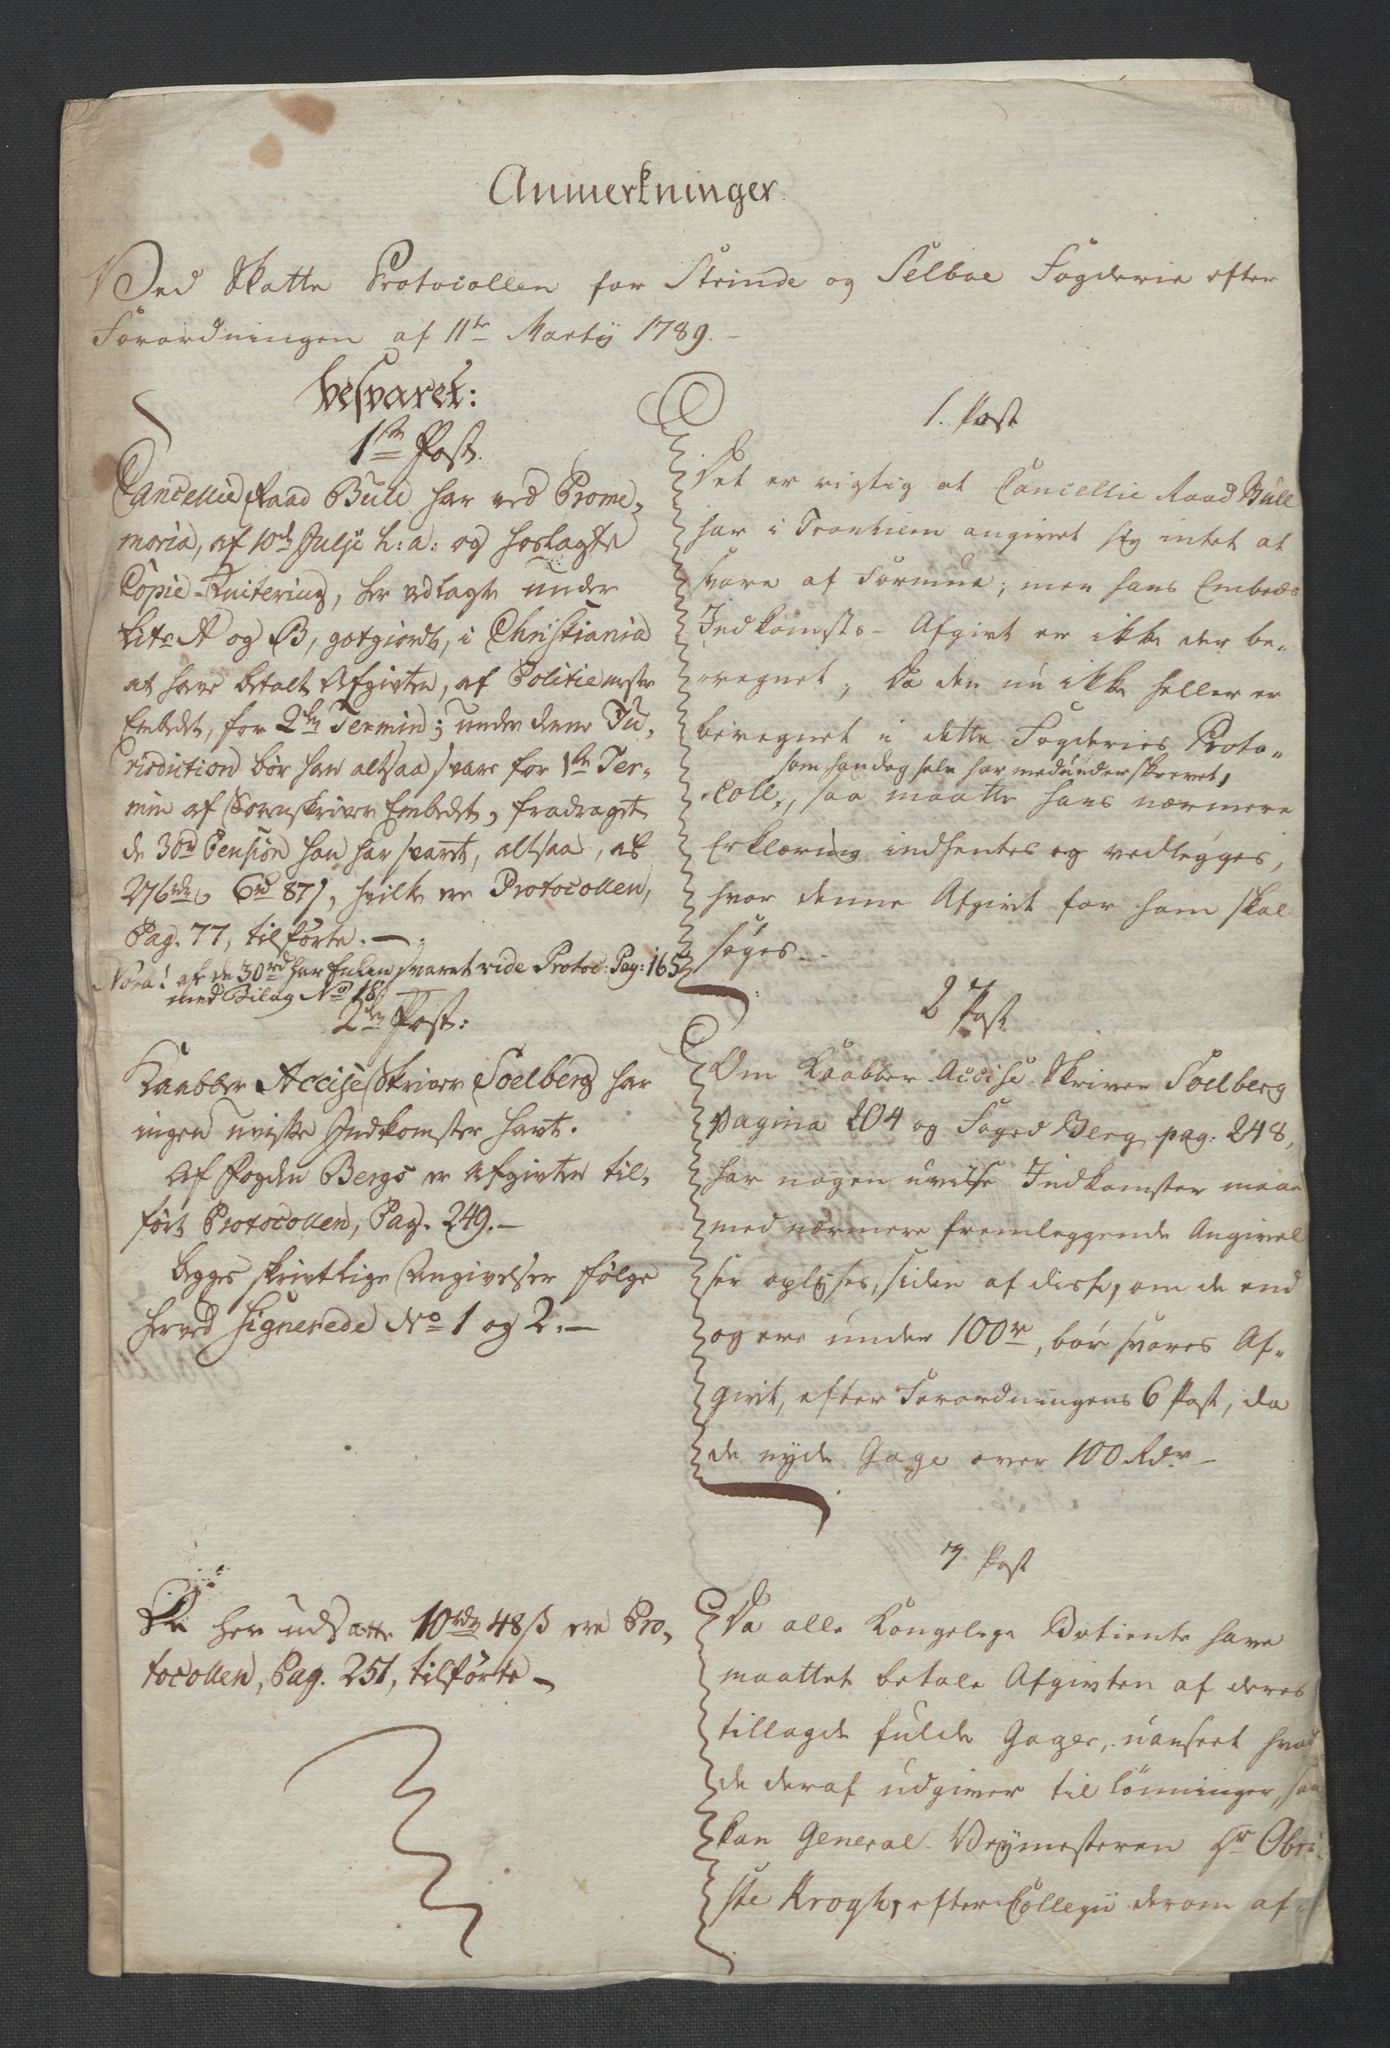 Anmerkninger
Ved Skatte Protocollen for Strinde og Selboe Fogderie efter
Forordningen af 11te Martij 1789.
besvaret:
1ste Post.
Cancellie Raad Bull har ved Prome-
moria, af 10de Julji h: a: og hoslagte
Copie-Quitering, her vedlagte under
Litr A og B, gotgiordt, i Christiania
at have betalt Afgivten, af Politiemester
Embedet, for 2den Termin; under denne Ju-
risdiction bør han altsaa svare for 1ste Ter-
min af Sorenskriver Embedet, fradraget
de 30rd Pension han har svaret, altsaa, af
276rdr 6rd 87s, hvilke ere Protocollen,
Pag. 77, tilførte.
Nota! af de 30rd har Enken svaret vide Protoc: Pag: 165
med Bilag No 18.
2den Post:
Kaabber Accise Skriver Soelberg har
ingen uvisse Indkomster havt.
Af Fogden Bergs er Afgivten til-
ført Protocollen, Pag. 249.
begges skrivtlige Angivelser følge
herved Signerede No 1 og 2.
De her udsatte 10rdr 48s ere Pro-
tocollen, Pag. 251, tilførte
1. Post
Det er rigtig at Cancellie Raad Bull
har i Tronhiem angivet sig intet at
svare af Formue; men hans Embeds
Indkomsts-Afgivt er ikke der be-
regnet; Da den nu ikke heller er
beregnet i dette Fogderies Proto-
som han dog selv har medunderskrevet,
coll, saa maatte hans nærmere
Erklæring indhentes og vedlegges,
hvor denne Afgivt for ham skal
søges.
2 Post
Om Kaabber Accise Skriver Soelberg
pagina 204 og Foged Berg pag: 248,
har nogen uvisse Indkomster maae
med nærmere fremleggende Angivel
ser oplyses, siden af disse, om de end
og ere under 100rd, bør svares Af-
givt, efter Forordningens 6 Post, da
de nyde Gage over 100 Rdr
7 Post
Da alle Kongelige Betiente have
maattet betale Afgivten af deres
tillagde fulde Gager, uanseet hvad
de deraf udgiver til Lønninger, saa
kan General-Veymesteren Hr Obri-
ste Krogh, efter Collegii derom af-